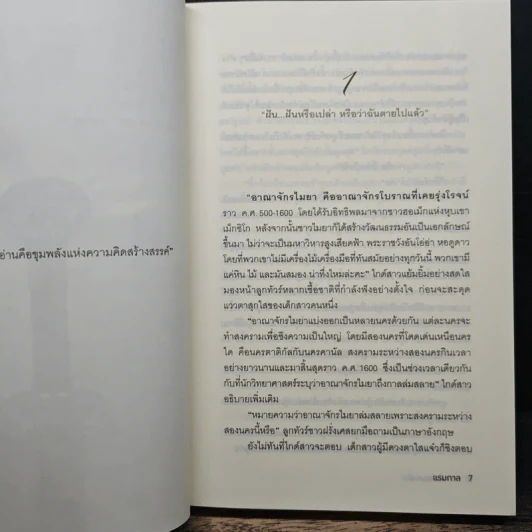 อ่านคือขุมพลังแห่งความคิดสร้างสรรค์"
1
"ฝัน...ฝันหรือเปล่า หรือว่าฉันตายไปแล้ว"
"อาณาจักรไมยา คืออาณาจักรโบราณที่เคยรุ่งโรจน์
ราว ค.ศ. 500-1600 โดยได้รับอิทธิพลมาจากชาวฮอเม็กแห่งหุบเขา
เม็กซิโก หลังจากนั้นชาวไมยาก็ได้สร้างวัฒนธรรมอันเป็นเอกลักษณ์
ขึ้นมา ไม่ว่าจะเป็นมหาวิหารสูงเสียดฟ้า พระราชวังอันโอ่อ่า หอดูดาว
โดยที่พวกเขาไม่มีเครื่องไม้เครื่องมือที่ทันสมัยอย่างทุกวันนี้ พวกเขามี
แค่หิน ไม้ และมันสมอง น่าทึ่งไหมล่ะคะ" ไกด์สาวแย้มยิ้มอย่างสดใส
มองหน้าลูกทัวร์หลากเชื้อชาติที่กำลังฟังอย่างตั้งใจ ก่อนจะสะดุด
แววตาสุกใสของเด็กสาวคนหนึ่ง
"อาณาจักรไมยาแบ่งออกเป็นหลายนครด้วยกัน แต่ละนครจะ
ทำสงครามเพื่อชิงความเป็นใหญ่ โดยมีสองนครที่โดดเด่นเหนือนคร
ใด คือนครตาติกัลกับนครคานัล สงครามระหว่างสองนครกินเวลา
อย่างยาวนานและมาสิ้นสุดราว ค.ศ. 1600 ซึ่งเป็นช่วงเวลาเดียวกัน
กับที่นักวิทยาศาสตร์ระบุว่าอาณาจักรไมยาถึงกาลล่มสลาย" ไกด์สาว
อธิบายเพิ่มเติม
"หมายความว่าอาณาจักรไมยาล่มสลายเพราะสงครามระหว่าง
สองนครนี้หรือ" ลูกทัวร์ชาวฝรั่งเศสยกมือถามเป็นภาษาอังกฤษ
ยังไม่ทันที่ไกด์สาวจะตอบ เด็กสาวผู้มีดวงตาใสแจ๋วก็ชิงตอบ
แรมกาล 7